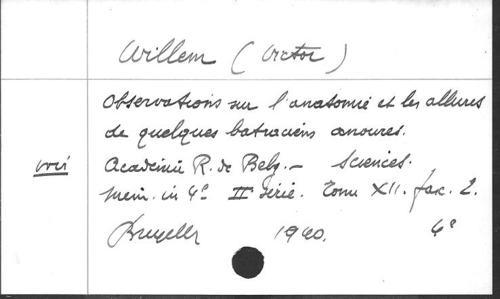 Willem (Victor)
Observations sur l'anatomie et les allures
de quelques batraciens anoures.
voir Académie R. de Belg. – Sciences.
Mém. in 4° II série. Tome XII. fasc. 2.
Bruxelles 1940. 4°